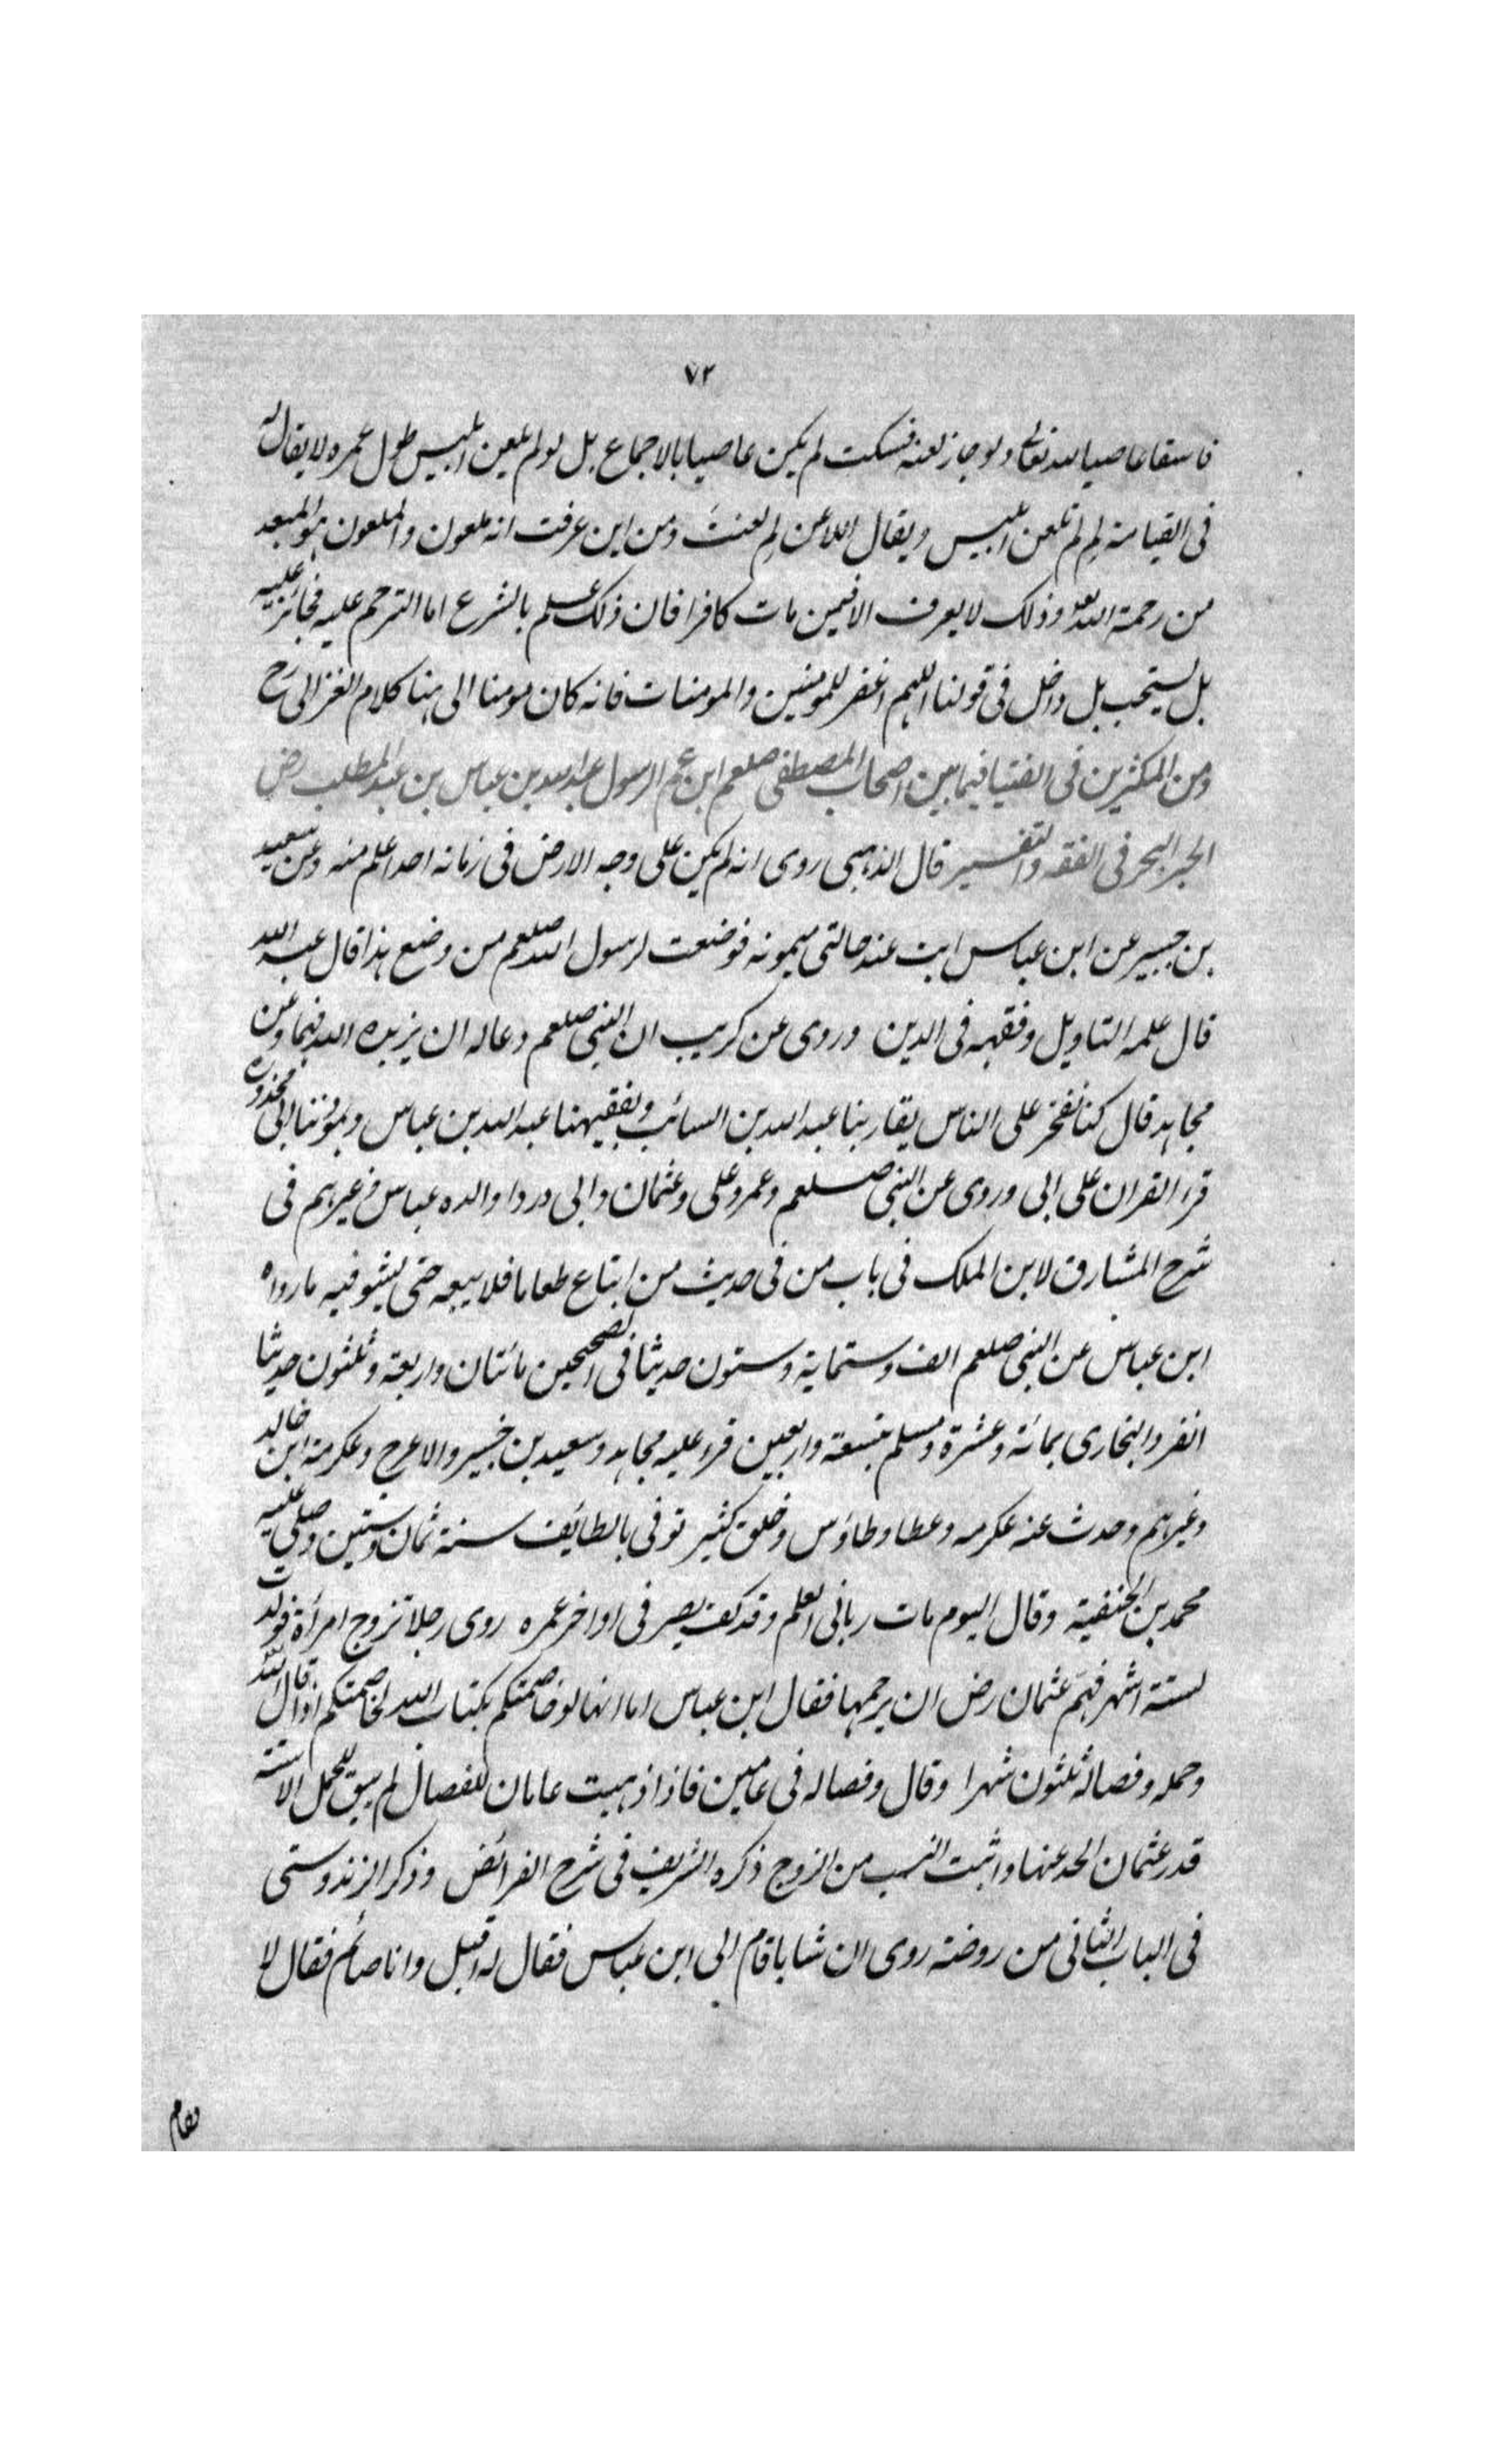 ٧٢
فاسقا عاصيا لله تعالى ولو جاز لعنه فسكت لم يكن عاصيا بالاجماع بل لو لم يلعن ابليس طول عمره لا يقال له
فى القيامة لِم لَم تلعن ابليس ويقال للاعن لِم لعنتَ ومن اين عرفت انه ملعون والملعون هو المبعد
من رحمة الله تعالى وذلك لا يعرف الا فيمن مات كافرا فان ذلك علم بالشرع اما الترحم عليه فجائز عليه
بل يستحب بل داخل فى قولنا اللهم اغفر للمومنين والمومنات فانه كان مومنا الى هنا كلام الغزالى رح
ومن المكثرين فى الفتيا فيما بين اصحاب المصطفى صلعم ابن عم الرسول عبد الله بن عباس بن عبد المطلب رض
الحبر البحر فى الفقه والتفسير قال الذهبى روى انه لم يكن على وجه الارض فى زمانه احد اعلم منه وعن سعيد
بن جبير عن ابن عباس ابت عند خالتى ميمونه فوضعت لرسول الله صلعم من وضع هذا قال عبد الله
قال علمه التاويل وفقهه فى الدين وروى عن كريب ان النبى صلعم دعا له ان يزيده الله فهما وعن
مجاهد قال كنا نفخر على الناس بقارينا عبد الله بن السائب وبفقيهنا عبد الله بن عباس وبموذننا ابى محذورة
قرء القران على ابى وروى عن النبى صلعم وعمر وعلى وعثمان وابى دردا والده عباس وغيرهم فى
شرح المشارق لابن الملك فى باب من فى حديث من ابتاع طعاما فلا يبعه حتى يستوفيه ما رواه
ابن عباس عن النبى صلعم الف وستماية وستون حديثا فى الصحيحين مائتان واربعة وثلثون حديثا
انفرد البخارى بمائة وعشرة ومسلم بتسعة واربعين قرء عليه مجاهد وسعيد بن خبير والاعرج وعكرمة ابن خالد
وغيرهم وحدث عنه عكرمه وعطا وطاؤس وخلق كثير توفى بالطائف سنة ثمان وستين وصلى عليه
محمد بن الحنفية وقال اليوم مات ربانى العلم وقد كف بصر فى اواخر عمره روى رجلا تزوج امرأة فولدت
لستة اشهر فهَم عثمان رض ان يرجمها فقال ابن عباس اما انها لو خاصمتكم بكتاب الله لخاصمتكم اذ قال الله قال
وحمله وفصاله ثلثون شهرا وقال وفصاله فى عامين فاذا ذهبت عامان للفصال لم يبق للحمل الا ستة
قدر عثمان الحد عنها واثبت النسب من الزوج ذكره الشريف فى شرح الفرائض وذكر الزندوستى
فى الباب الثانى من روضته روى ان شابا قام الى ابن عباس فقال له اقبل وانا صائم فقال لا
فقام